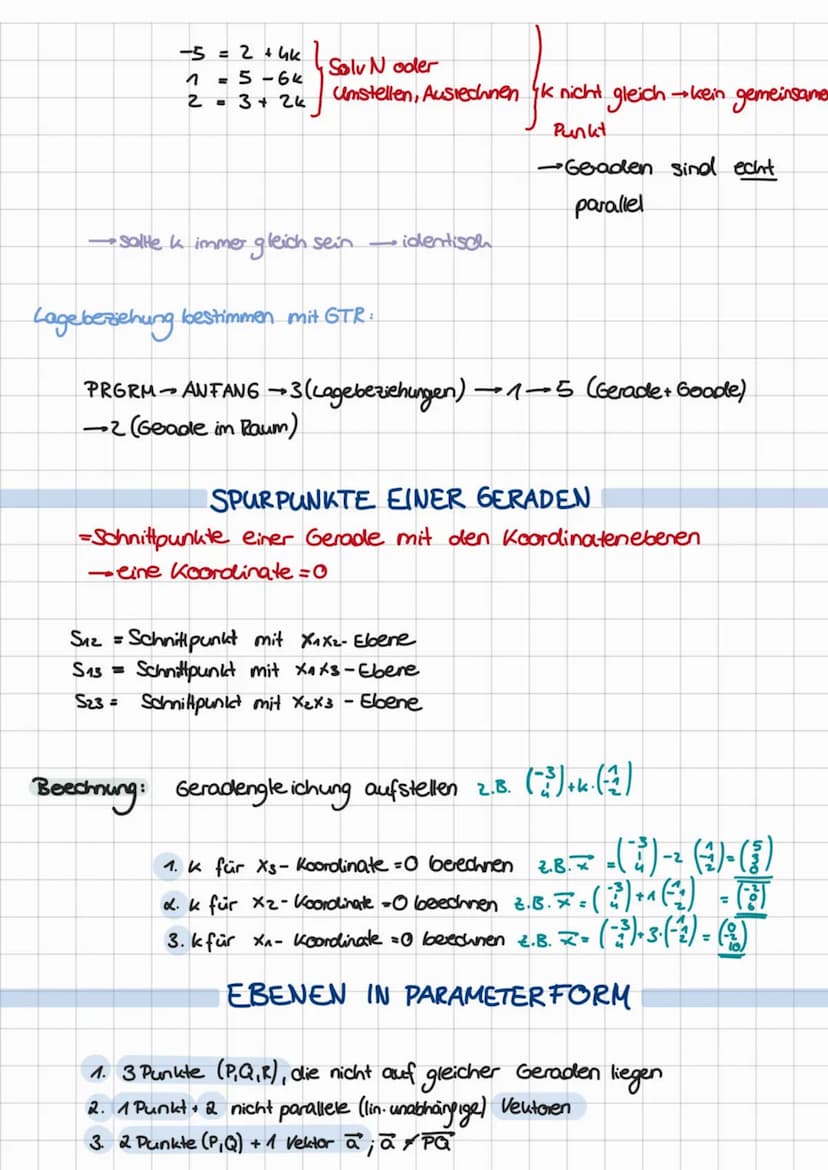 -5 = 2 + 4k
1 = 5 - 6k
2 = 3 + 2k
Solv N oder
Umstellen, Ausrechnen
k nicht gleich → kein gemeinsame
Punkt
→ Geraden sind echt
parallel
→ sollte k immer gleich sein → identisch
Lagebeziehung bestimmen mit GTR:
PRGRM → ANFANG → 3 (Lagebeziehungen) → 1 → 5 (Gerade + Gerade)
→ 2 (Gerade im Raum)
SPURPUNKTE EINER GERADEN
= Schnittpunkte einer Gerade mit den Koordinatenebenen
→ eine Koordinate = 0
S12 = Schnittpunkt mit x1x2 - Ebene
S13 = Schnittpunkt mit x1x3 - Ebene
S23 = Schnittpunkt mit x2x3 - Ebene
Berechnung: Geradengleichung aufstellen z.B.
1. k für x3 - Koordinate = 0 berechnen z.B. x⃗ =
2. k für x2 - Koordinate = 0 berechnen z.B. x⃗ =
3. k für x1 - Koordinate = 0 berechnen z.B. x⃗ =
EBENEN IN PARAMETERFORM
1. 3 Punkte (P,Q,R), die nicht auf gleicher Geraden liegen
2. 1 Punkt + 2 nicht parallele (lin. unabhängige) Vektoren
3. 2 Punkte (P,Q) + 1 Vektor a⃗ ; a⃗ ∦ PQ⃗